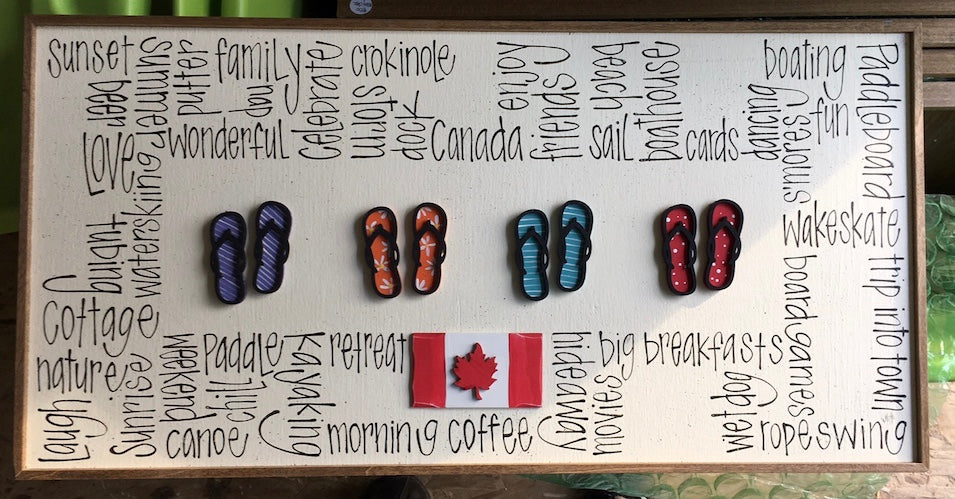 sunset
summer
putter
family
celebrate
crokinole
storm
dock
enjoy
friends
beach
boathouse
boating
fun
Paddleboard
trip into town
Love
waterskiing
wonderful
Canada
sail
cards
dancing
s'mores
wakeskate
tubing
Cottage
nature
Sunrise
laugh
weekend
Paddle
chill
canoe
kayaking
retreat
morning coffee
hideaway
movies
big breakfasts
board games
wet dog
rope swing